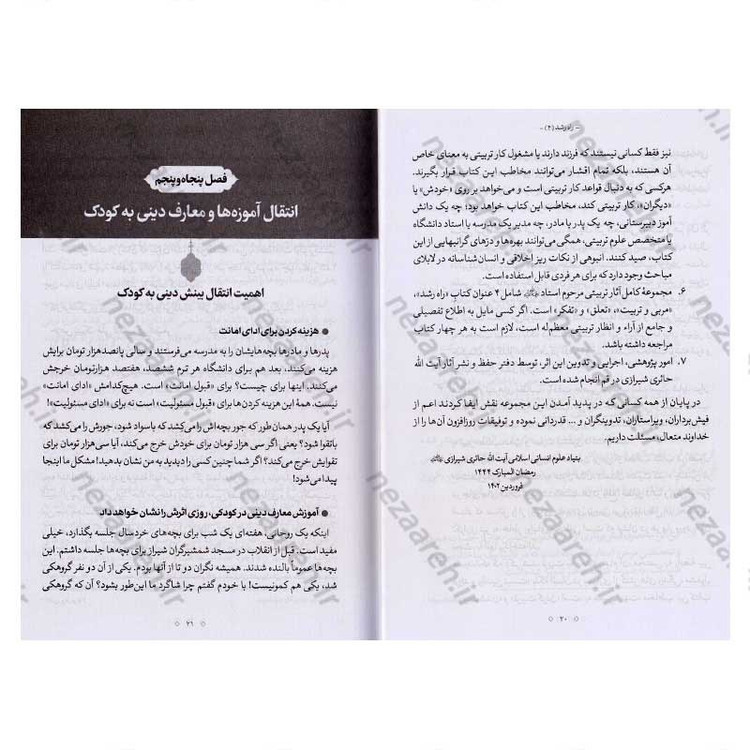 - راه رشد (۴) -
نیز فقط کسانی نیستند که فرزند دارند یا مشغول کار تربیتی به معنای خاص
آن هستند، بلکه تمام اقشار می‌توانند مخاطب این کتاب قرار بگیرند.
هرکسی که به دنبال قواعد کار تربیتی است و می‌خواهد بر روی «خودش» یا
«دیگران»، کار تربیتی کند، مخاطب این کتاب خواهد بود؛ چه یک دانش
آموز دبیرستانی، چه یک پدر یا مادر، چه مدیر یک مدرسه یا استاد دانشگاه
یا متخصص علوم تربیتی، همگی می‌توانند بهره‌ها و دژهای گرانبهایی از این
کتاب، صید کنند. انبوهی از نکات ریز اخلاقی و انسان‌شناسانه در لابلای
مباحث وجود دارد که برای هر فردی قابل استفاده است.
۶. مجموعهٔ کامل آثار تربیتی مرحوم استاد شامل ۴ عنوان کتاب «راه رشد»،
«مربی و تربیت»، «تعلق» و «تفکر» است. اگر کسی مایل به اطلاع تفصیلی
و جامع از آراء و انظار تربیتی معظم‌له است، لازم است به هر چهار کتاب
مراجعه داشته باشد.
۷. امور پژوهشی، اجرایی و تدوین این اثر، توسط دفتر حفظ و نشر آثار آیت الله
حائری شیرازی در قم انجام شده است.
در پایان از همه کسانی که در پدید آمدن این مجموعه نقش ایفا کردند اعم از
فیش‌برداران، ویراستاران، تدوینگران و ... قدردانی نموده و توفیقات روزافزون آن‌ها را از
خداوند متعال، مسئلت داریم.
بنیاد علوم انسانی اسلامی آیت الله حائری شیرازی
رمضان المبارک ۱۴۴۴
فروردین ۱۴۰۲
۲۰
فصل پنجاه و پنجم
انتقال آموزه‌ها و معارف دینی به کودک
اهمیت انتقال بینش دینی به کودک
هزینه کردن برای ادای امانت
پدرها و مادرها بچه‌هایشان را به مدرسه می‌فرستند و سالی پانصدهزار تومان برایش
هزینه می‌کنند، بعد هم برای دانشگاه هر ترم ششصد، هفتصد هزارتومان خرجش
می‌کنند. اینها برای چیست؟ برای «قبول امانت» است. هیچ‌کدامش «ادای امانت»
نیست. همهٔ این هزینه کردن‌ها برای «قبول مسئولیت» است نه برای «ادای مسئولیت»!
آیا یک پدر همان طور که جور بچه‌اش را می‌کشد که باسواد شود، جورش را می‌کشد که
باتقوا شود؟ یعنی اگر سی هزار تومان برای خودش خرج می‌کند، آیا سی هزار تومان برای
تقوایش خرج می‌کند؟ اگر شما چنین کسی را دیدید به من نشان بدهید! مشکل ما اینجا
پیدا می‌شود!
آموزش معارف دینی در کودکی، روزی اثرش را نشان خواهد داد
اینکه یک روحانی، هفته‌ای یک شب برای بچه‌های خردسال جلسه بگذارد، خیلی
مفید است. قبل از انقلاب در مسجد شمشیرگران شیراز برای بچه‌ها جلسه داشتم. این
بچه‌ها عموماً بالنده شدند. همیشه نگران دو تا از آنها بودم. یکی از آن دو نفر گروهکی
شد، یکی هم کمونیست! با خودم گفتم چرا شاگرد ما این‌طور بشود؟ آن که گروهکی
۲۱
nezaareh.ir